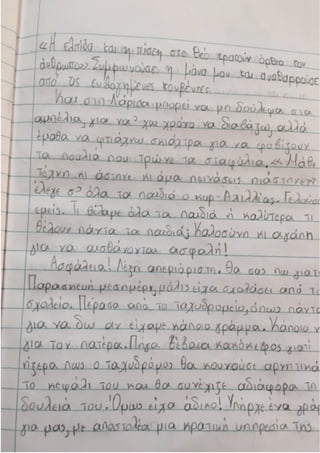 «Η ελπίδα και η πίστη στο Θεό κρατούν όρθιο τον
άνθρωπο». Συμφωνούσε η μάνα μου και αναθαρρούσε
από τις ευλογημένες κουβέντες.
Και στη Λάρισα μπορεί να μη δούλεψα στα
αμπέλια, για να 'χω χρόνο να διαβάζω, αλλά
έμαθα να φτιάχνω σκιάχτρα για να φοβίζουν
τα πουλιά που τρώνε τα σταφύλια. «Μάθε
τέχνη κι άστηνε κι άμα πεινάσεις πιάστηνε»
έλεγε σ' όλα τα παιδιά ο κυρ-Αχιλλέας. Γελούσαμε
εμείς. Τι θέλαμε όλα τα παιδιά ή καλύτερα τι
θέλουν πάντα τα παιδιά; Καλοσύνη κι αγάπη
για να αισθάνονται ασφαλή!
Ασφάλεια! Λέξη απεριόριστη. Θα σας πω γιατί
Παρασκευή μεσημέρι, μόλις είχα σχολάσει από το
σχολείο. Πέρασα από το ταχυδρομείο, όπως πάντα
για να δω αν είχαμε κάποιο γράμμα. Κάποιο ν
για τον πατέρα. Πήγα βέβαια κακόκεφος γιατί
ήξερα πως ο ταχυδρόμος θα κουνούσε αρνητικά
το κεφάλι του και θα συνέχιζε αδιάφορα τη
δουλειά του. Όμως είχα άδικο! Υπήρχε ένα γρά
για μας, με αποστολέα μια κρατική υπηρεσία της